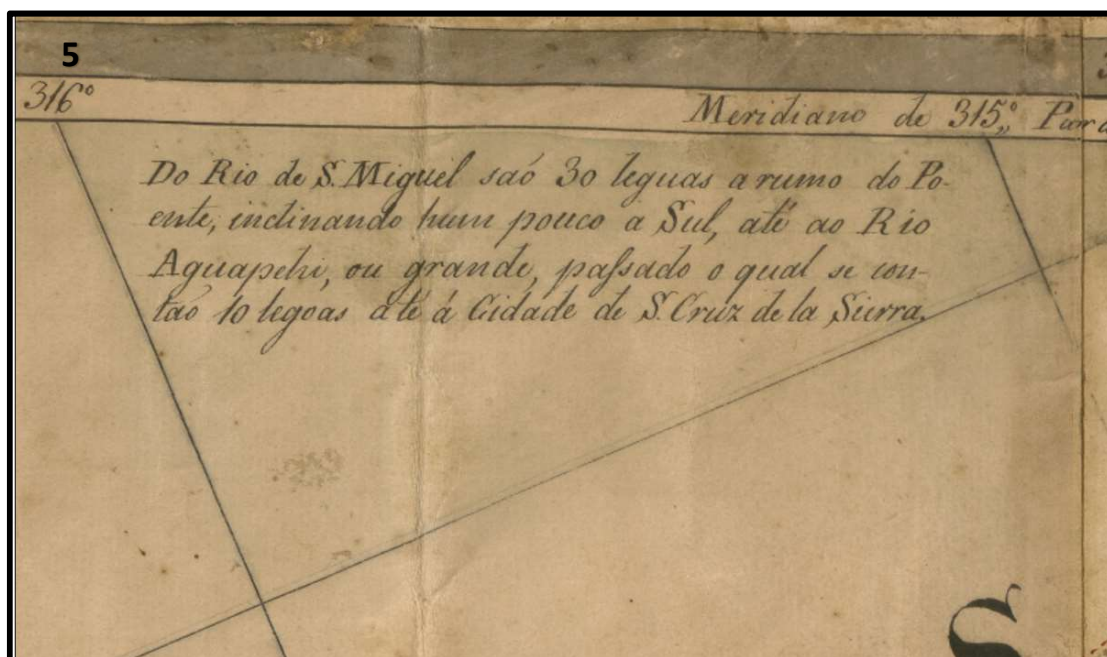 5
316°
Meridiano de 315°,,
Do Rio de S. Miguel saó 30 leguas a rumo do Po-
ente, inclinando hum pouco a Sul, até ao Rio
Aguapehi, ou grande, paſsado o qual se con-
tão 10 legoas até á Cidade de S. Cruz de la Sierra.
S